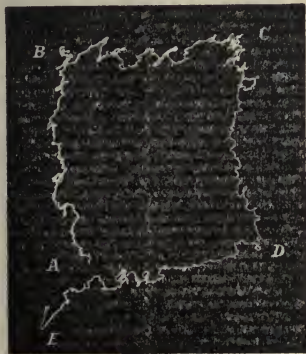 B C
A D
E